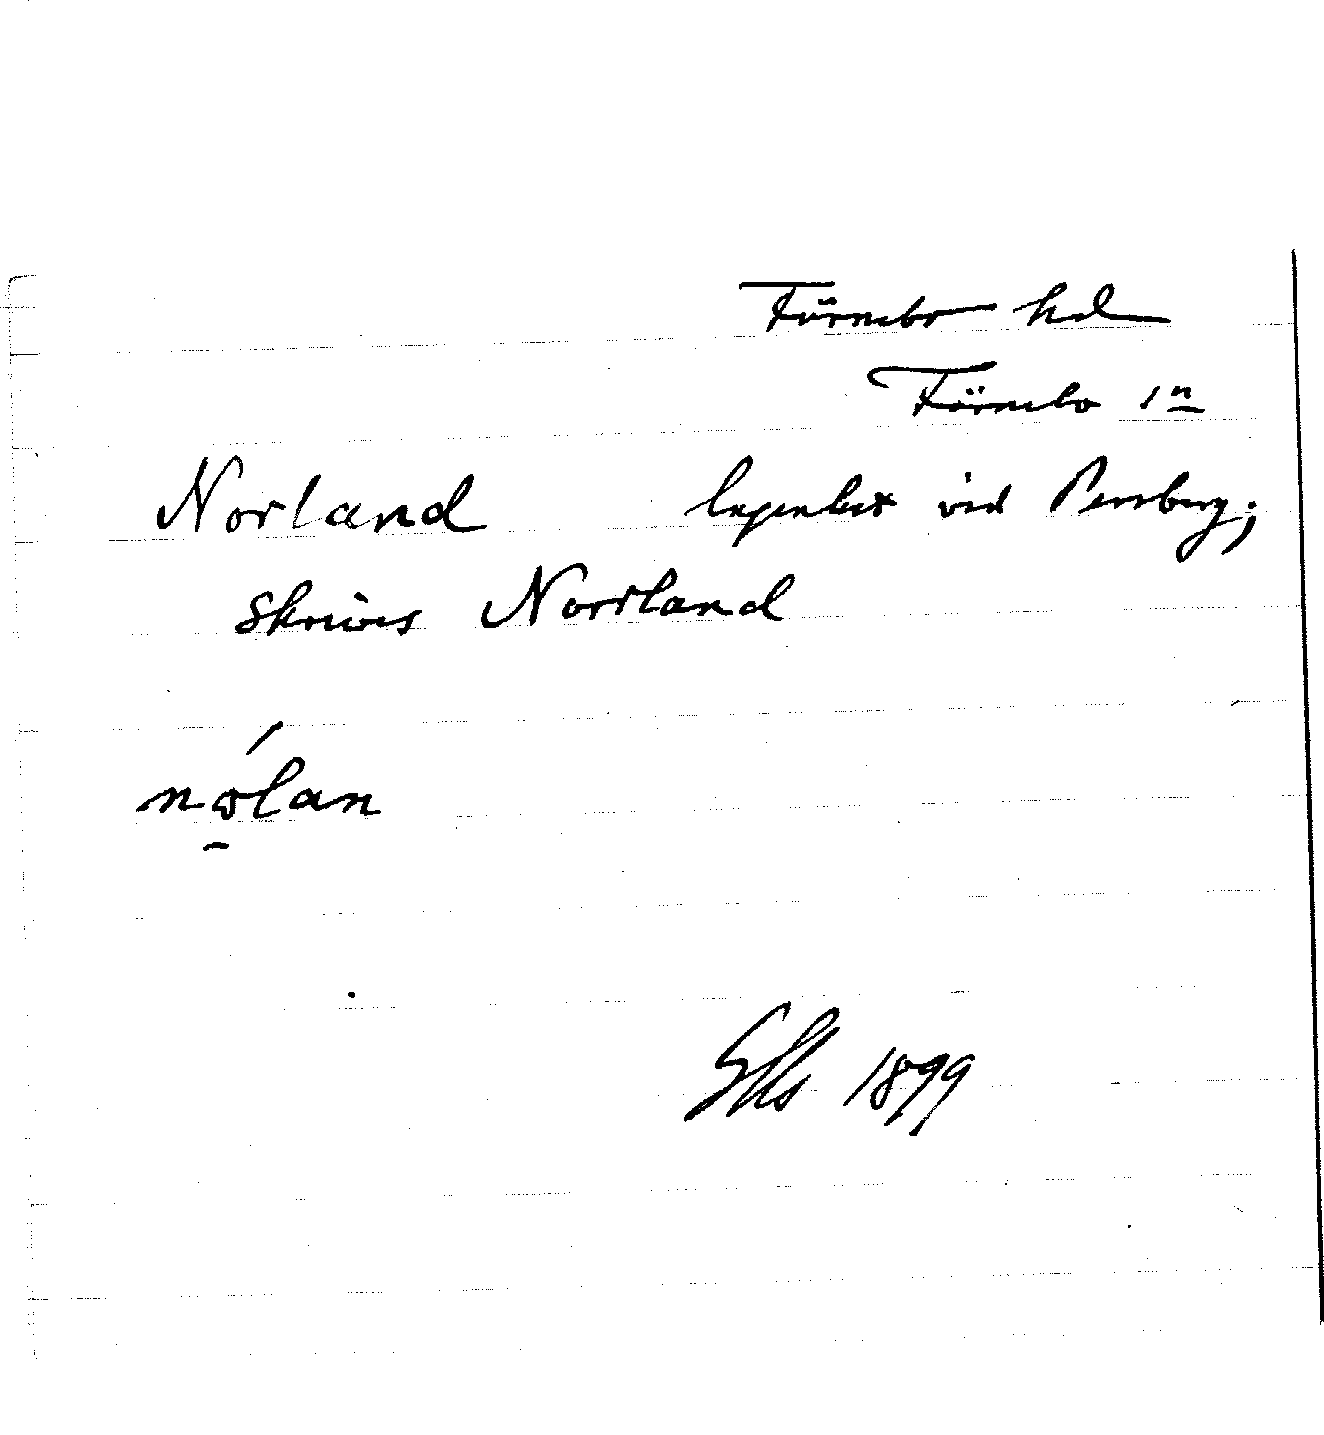 Färnebo hd
Färnebo sn
Norland lägenhet vid Persberg;
skrives Norrland
nólan
1899